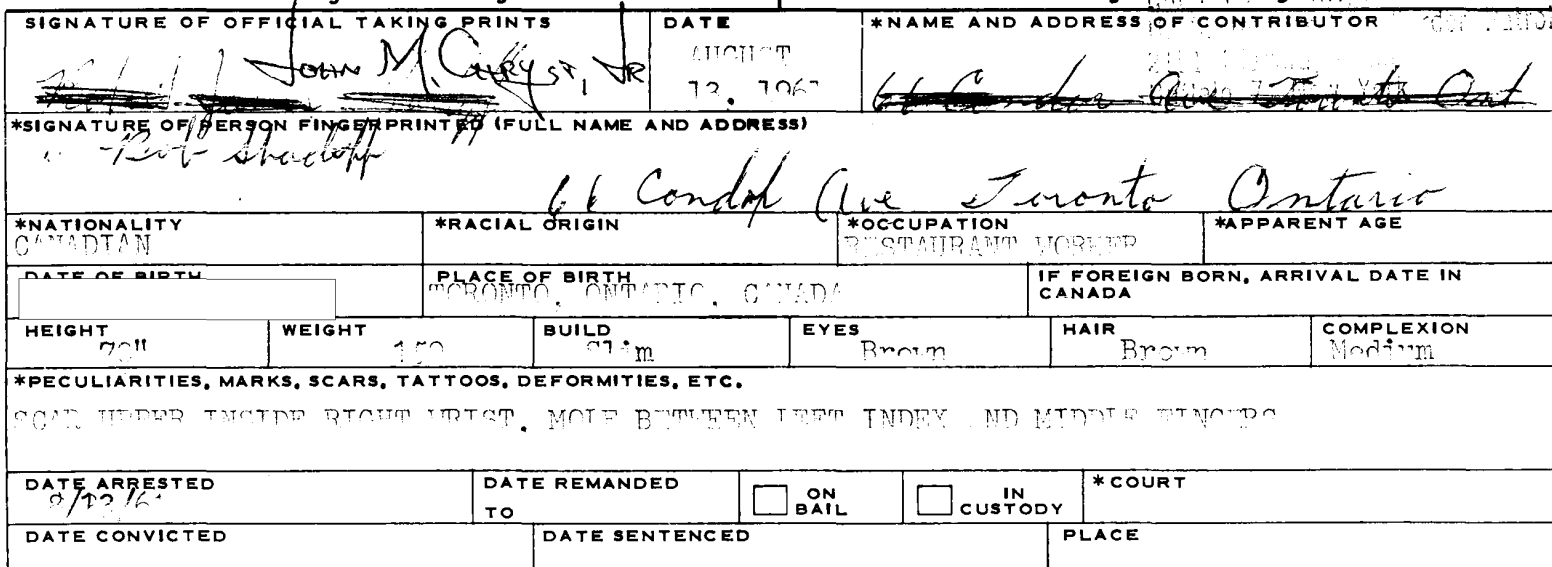 SIGNATURE OF OFFICIAL TAKING PRINTS
JOHN M. JR
DATE
AUGUST
13, 196
*NAME AND ADDRESS OF CONTRIBUTOR
66 Ave Toronto Ont
*SIGNATURE OF PERSON FINGERPRINTED (FULL NAME AND ADDRESS)
Bob
66 Ave Toronto Ontario
*NATIONALITY
CANADIAN
*RACIAL ORIGIN
*OCCUPATION
RESTAURANT WORKER
*APPARENT AGE
DATE OF BIRTH
PLACE OF BIRTH
TORONTO, ONTARIO, CANADA
IF FOREIGN BORN, ARRIVAL DATE IN
CANADA
HEIGHT
WEIGHT
BUILD
Slim
EYES
Brown
HAIR
Brown
COMPLEXION
Medium
*PECULIARITIES, MARKS, SCARS, TATTOOS, DEFORMITIES, ETC.
SCAR UPPER INSIDE RIGHT WRIST. MOLE BETWEEN LEFT INDEX AND MIDDLE FINGERS
DATE ARRESTED
DATE REMANDED
TO
ON
BAIL
IN
CUSTODY
*COURT
DATE CONVICTED
DATE SENTENCED
PLACE